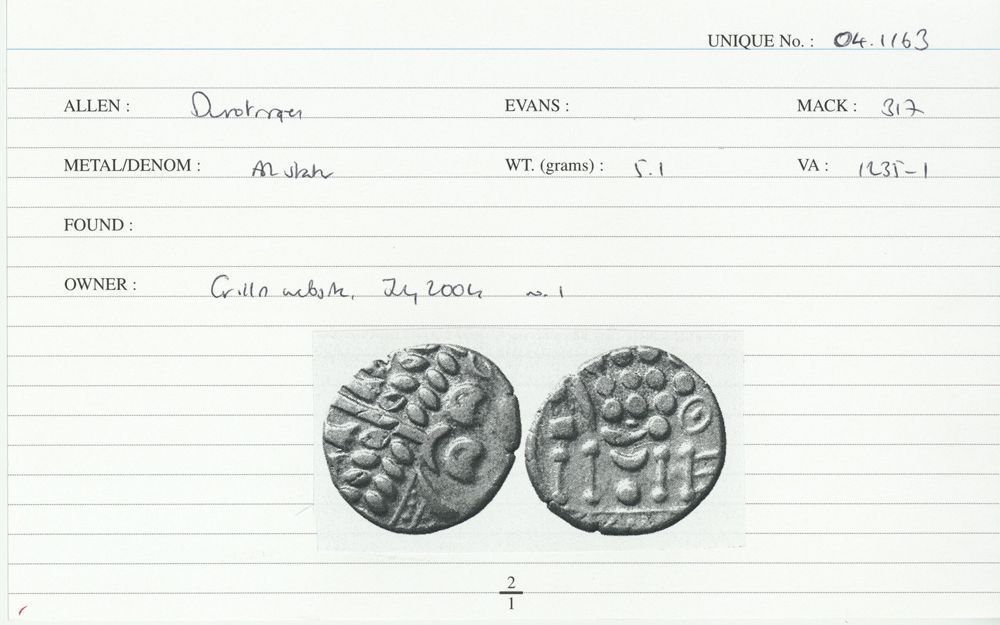 UNIQUE No. : 04.1163
ALLEN : Durotriges EVANS : MACK : 317
METAL/DENOM : AR stater WT. (grams) : 5.1 VA : 1235-1
FOUND :
OWNER : website, July 2004 no. 1
2
1